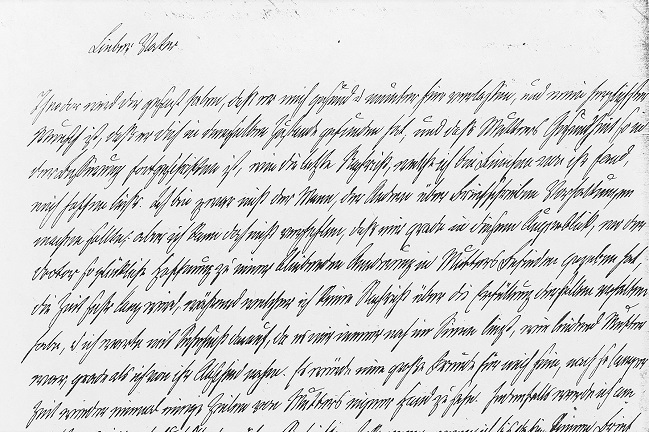 Lieber Vater
Theodor wird dir gesagt haben, daß er mich gesund u munter hier verlassen, und mein herzlichster
Wunsch ist, daß er dich in demselben Zustande gefunden hat, und daß Mutters Gesundheit so in
der Besserung fortgeschritten ist, wie die letzte Nachricht, welche ich bei von ihr fand,
mich hoffen ließ. Ich bin zwar nicht der Mann, der Andern über Briefschreiben Vorhaltungen
machen sollte; aber ich kann doch nicht verhehlen, daß mir grade in diesem Augenblick, wo der
Doctor so Hoffnung zu einer Aenderung in Mutters Befinden gegeben hat
die Zeit sehr lang wird, während welcher ich keine Nachricht über die Erfüllung derselben erhalten
habe, u ich warte mit Sehnsucht darauf, da es mir immer noch im Sinne liegt, wie leidend Mutter
war, grade als ich von ihr Abschied nahm. Es würde eine große Freude für mich sein, nach so langer
Zeit wieder einmal einige Zeilen von Mutters eigener Hand zu sehn. Jedenfalls werde ich am